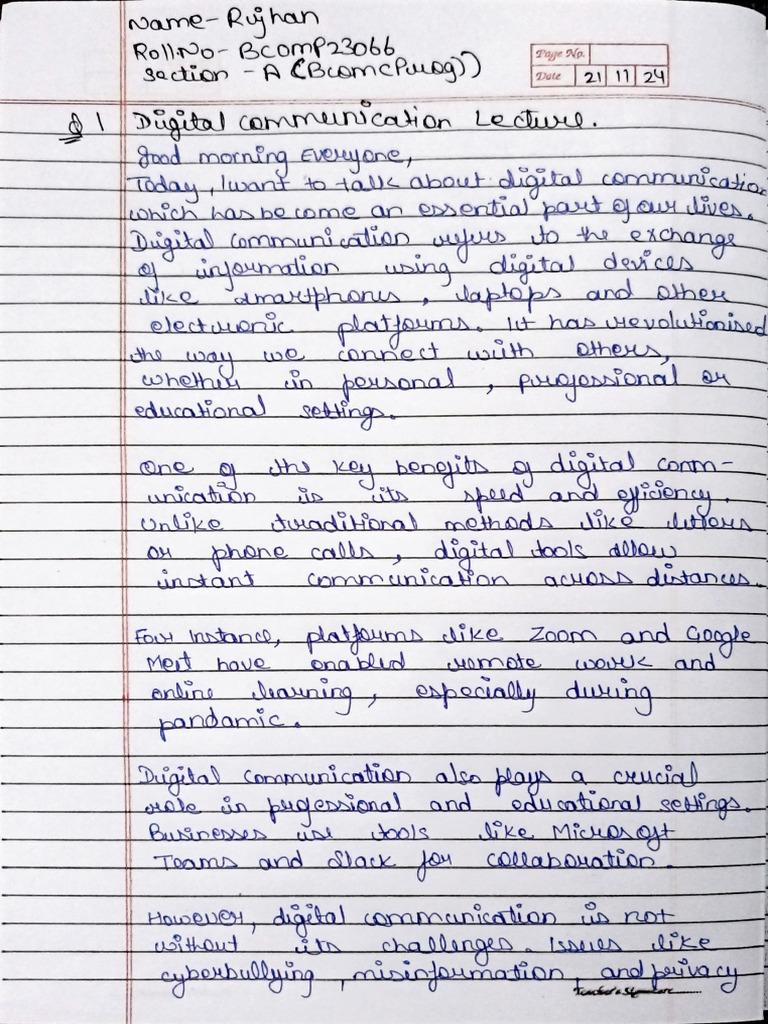 Name- Rujhan
Roll No- BComP23066
Section - A (BcomCProg))
Page No.
Date 21 11 24
Q 1 Digital communication Lecture.
Good morning Everyone,
Today, I want to talk about digital communication
which has become an essential part of our lives.
Digital communication refers to the exchange
of information using digital devices
like smartphones, laptops and other
electronic platforms. It has revolutionised
the way we connect with others,
whether in personal, professional or
educational settings.
One of the key benefits of digital comm-
unication is its speed and efficiency.
Unlike traditional methods like letters
or phone calls, digital tools allow
instant communication across distances.
For Instance, platforms like Zoom and Google
Meet have enabled remote work and
online learning, especially during
pandamic.
Digital communication also plays a crucial
role in professional and educational settings.
Businesses use tools like Microsoft
Teams and Slack for collaboration.
However, digital communication is not
without its challenges. Issues like
cyberbullying, misinformation, and privacy
Teacher's Signature